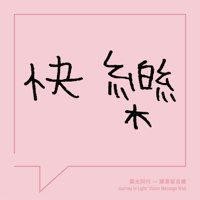 快樂
樂光同行 － 願景留言牆
Journey in Light: Vision Message Wall